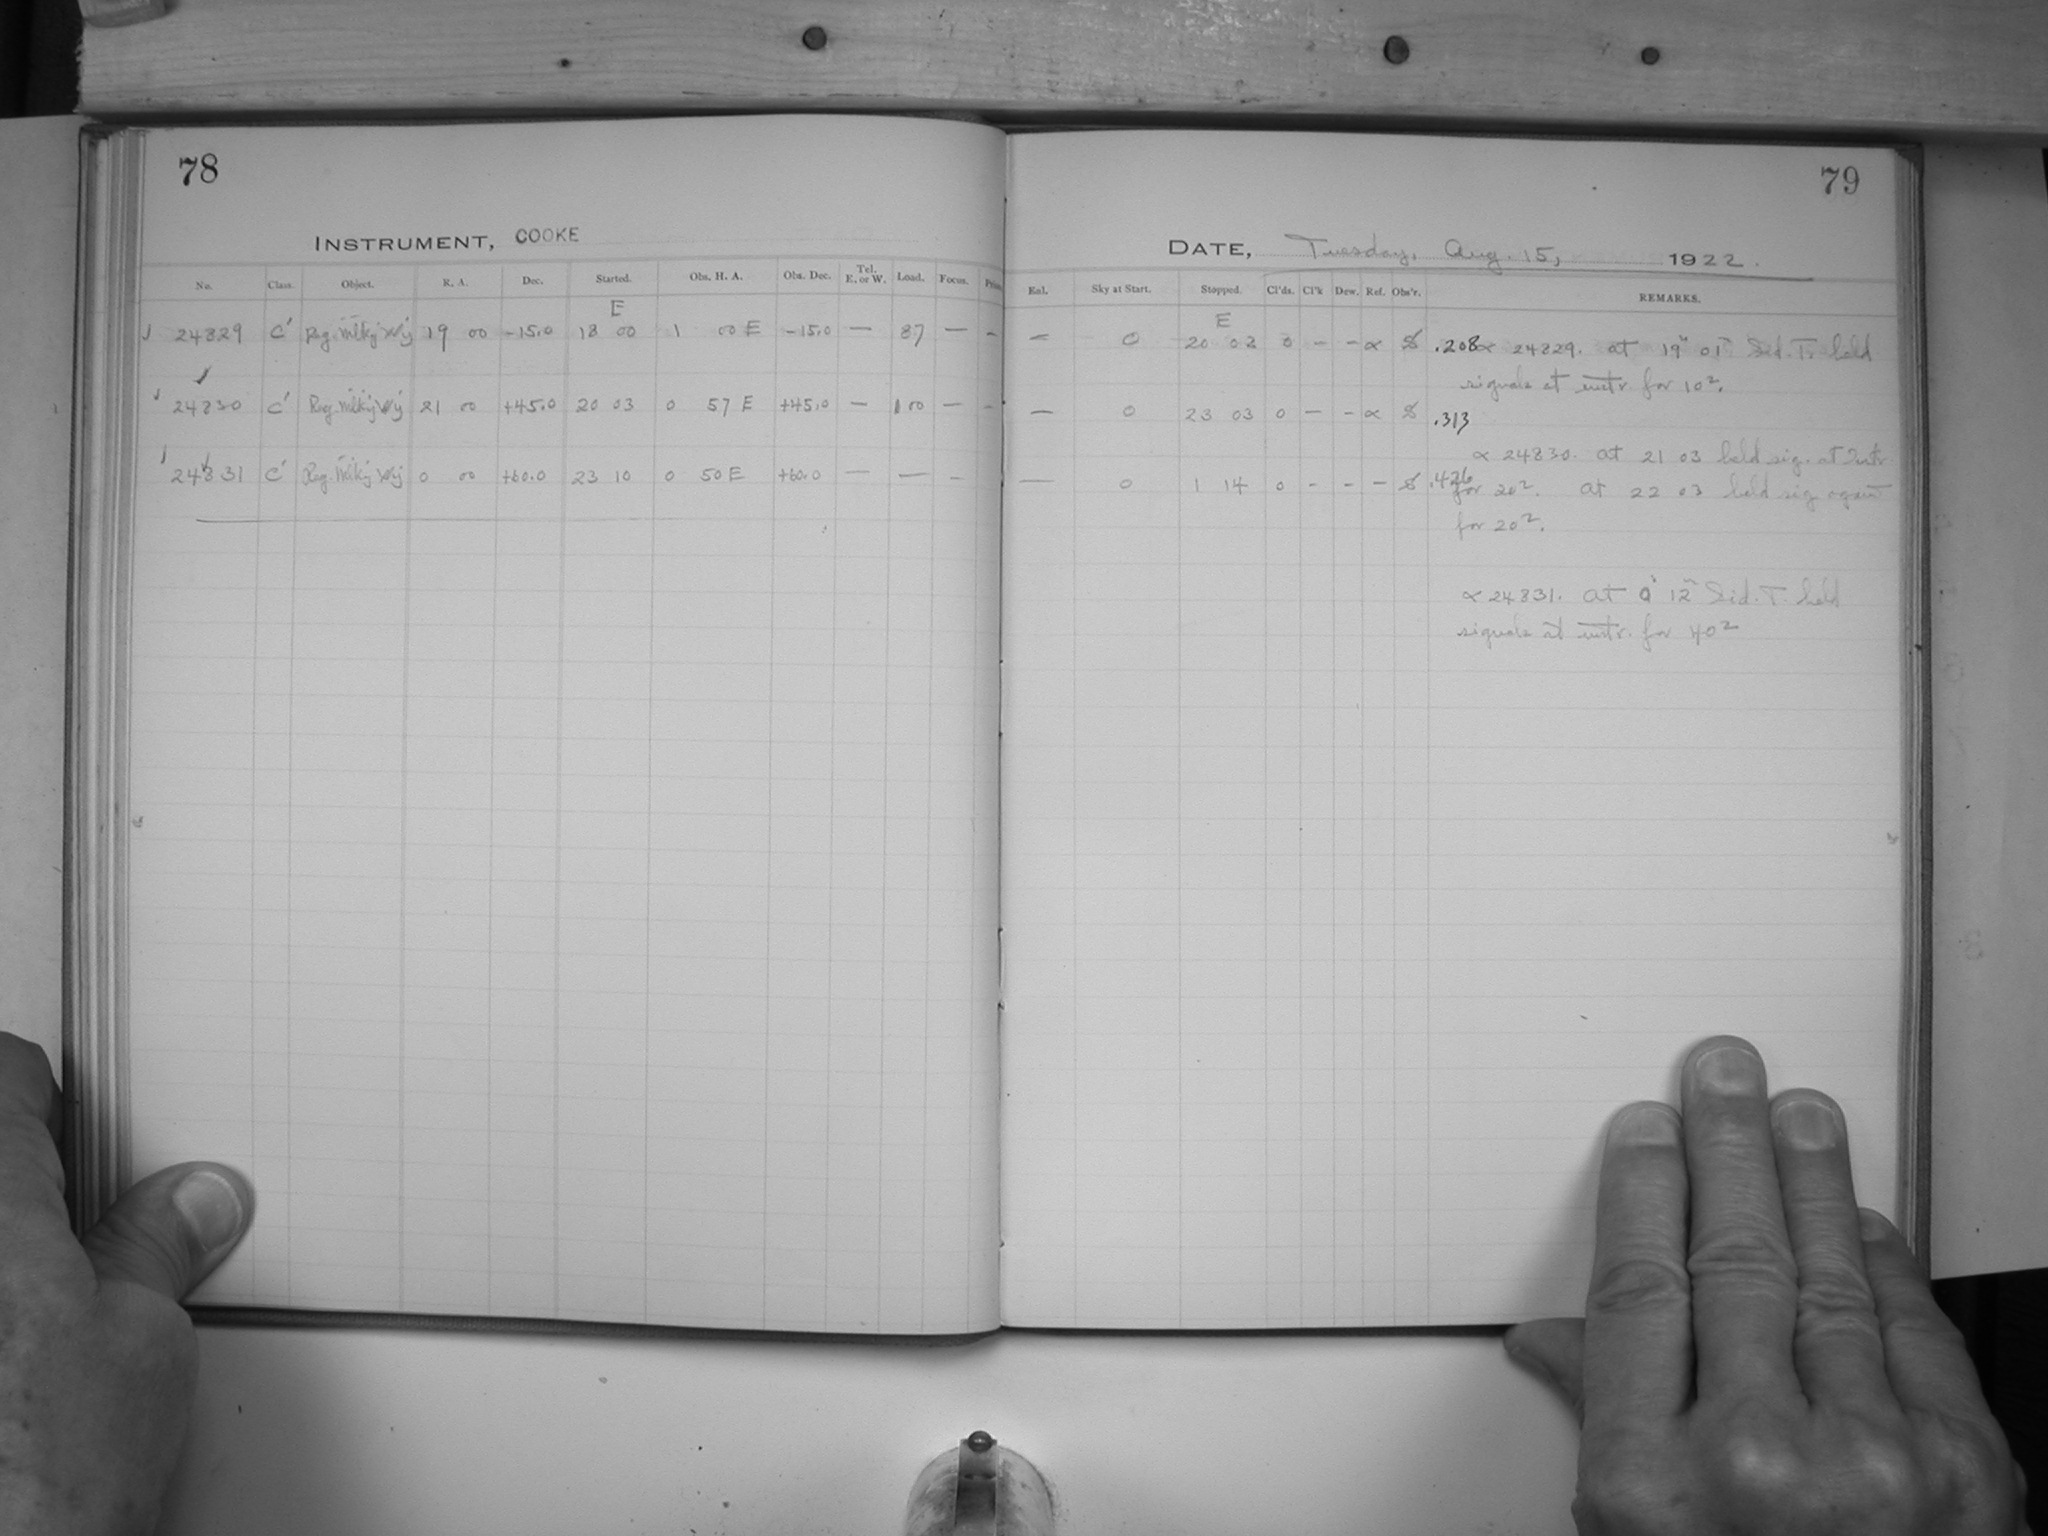 78
INSTRUMENT, COOKE
No. Class. Object. R. A. Dec. Started. Obs. H. A. Obs. Dec. Tel. E. or W. Load. Focus.
E
24829 C' Reg. Milky Way 19 00 -15.0 18 00 1 00 E -15.0 — 87 — -
24830 C' Reg. Milky Way 21 00 +45.0 20 03 0 57 E +45.0 — 100 — -
24831 C' Reg. Milky Way 0 00 +60.0 23 10 0 50 E +60.0 — — -
79
DATE, Tuesday, Aug. 15, 1922.
Sky at Start. Stopped. Cl'ds. Cl'k Dew. Ref. Obs'r. REMARKS.
E
— 0 20 02 0 - - ∝ .208 ∝ 24829. at 19h 01m Sid. T. held
signals at instr. for 10s.
— 0 23 03 0 - - ∝ .313
∝ 24830. at 21 03 held sig. at Instr.
— 0 1 14 0 - - - .426 for 20s. At 22 03 held sig again
for 20s.
∝ 24831. At 0h 12m Sid. T. held
signals at instr. for 40s